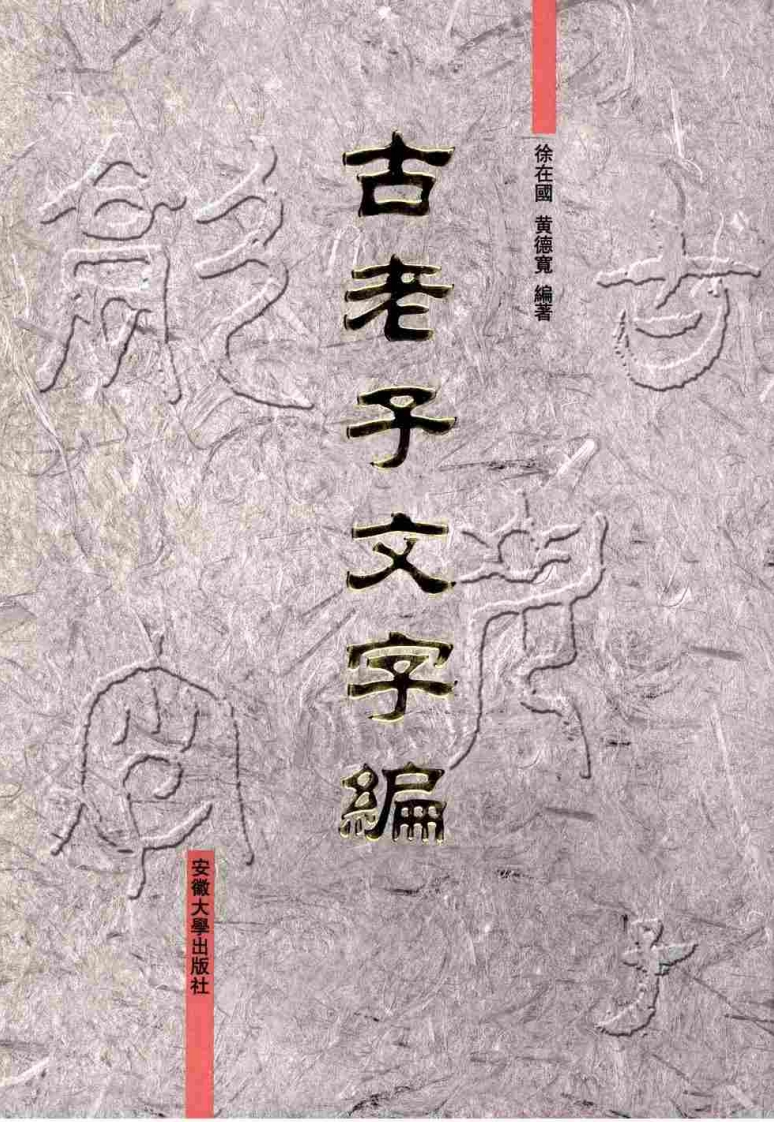 徐在國 黄德寬 編著
古老子文字編
安徽大學出版社